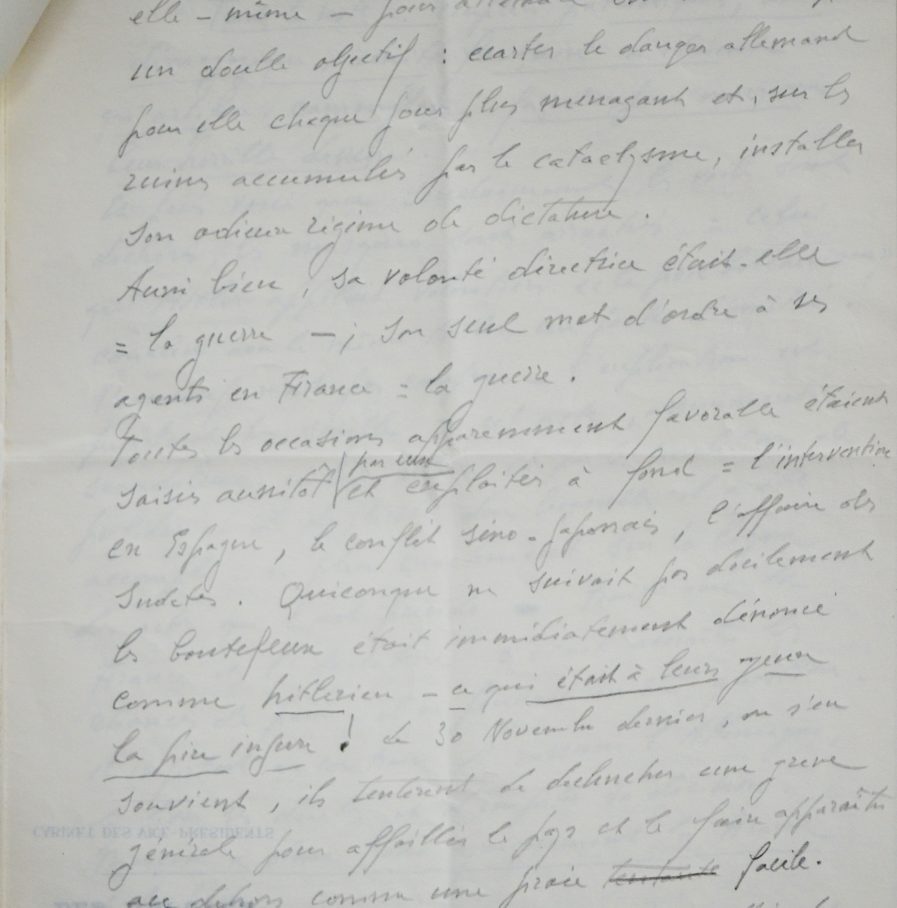 elle-même — pour
un double objectif : écarter le danger allemand
pour elle chaque jour plus menaçant et, sur les
ruines accumulées par le cataclysme, installer
son odieux régime de dictature.
Aussi bien, sa volonté directrice était-elle
= la guerre — ; son seul mot d'ordre à ses
agents en France = la guerre.
Toutes les occasions apparemment favorable étaient
par eux
saisies aussitôt et exploitées à fond = l'intervention
en Espagne, le conflit sino-japonais, l'affaire des
Sudètes. Quiconque ne suivait pas docilement
les boutefeux était immédiatement dénoncé
comme hitlérien - ce qui était à leurs yeux
la pire injure ! Le 30 Novembre dernier, on s'en
souvient, ils tentèrent de déclencher une grève
générale pour affaiblir le pays et le faire apparaître
au dehors comme une proie tentante facile.
CABINET DES VICE-PRÉSIDENTS